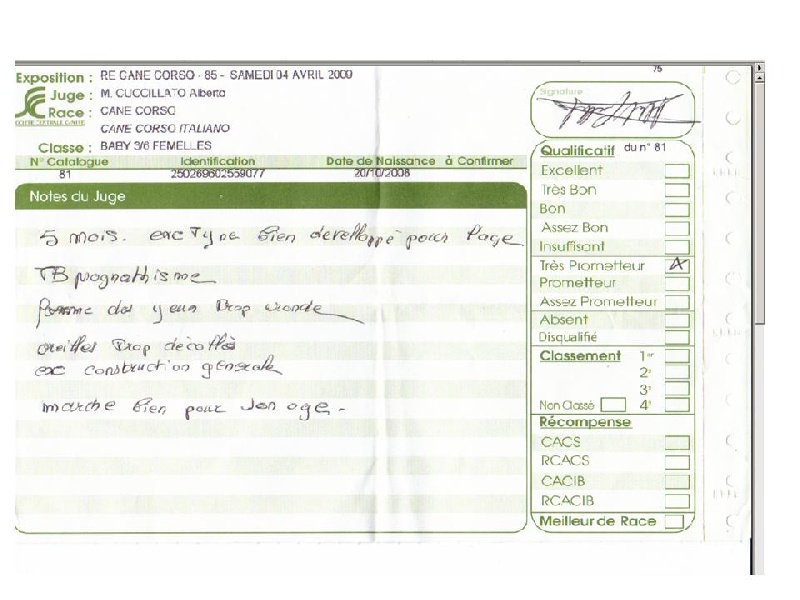 75
Exposition : RE CANE CORSO - 85 - SAMEDI 04 AVRIL 2009
Juge : M. CUCCILLATO Alberto
Race : CANE CORSO
CANE CORSO ITALIANO
Classe : BABY 3/6 FEMELLES
N° Catalogue Identification Date de Naissance à Confirmer
81 250269602559077 20/10/2008
Notes du Juge
5 mois. exc Type bien developpé pour l'age
TB prognathisme
forme des yeux trop ronde
oreilles trop décollés
exc construction générale
marche bien pour son age -
Signature
Qualificatif du n° 81
Excellent
Très Bon
Bon
Assez Bon
Insuffisant
Très Prometteur X
Prometteur
Assez Prometteur
Absent
Disqualifié
Classement 1er
2e
3e
Non Classé 4e
Récompense
CACS
RCACS
CACIB
RCACIB
Meilleur de Race